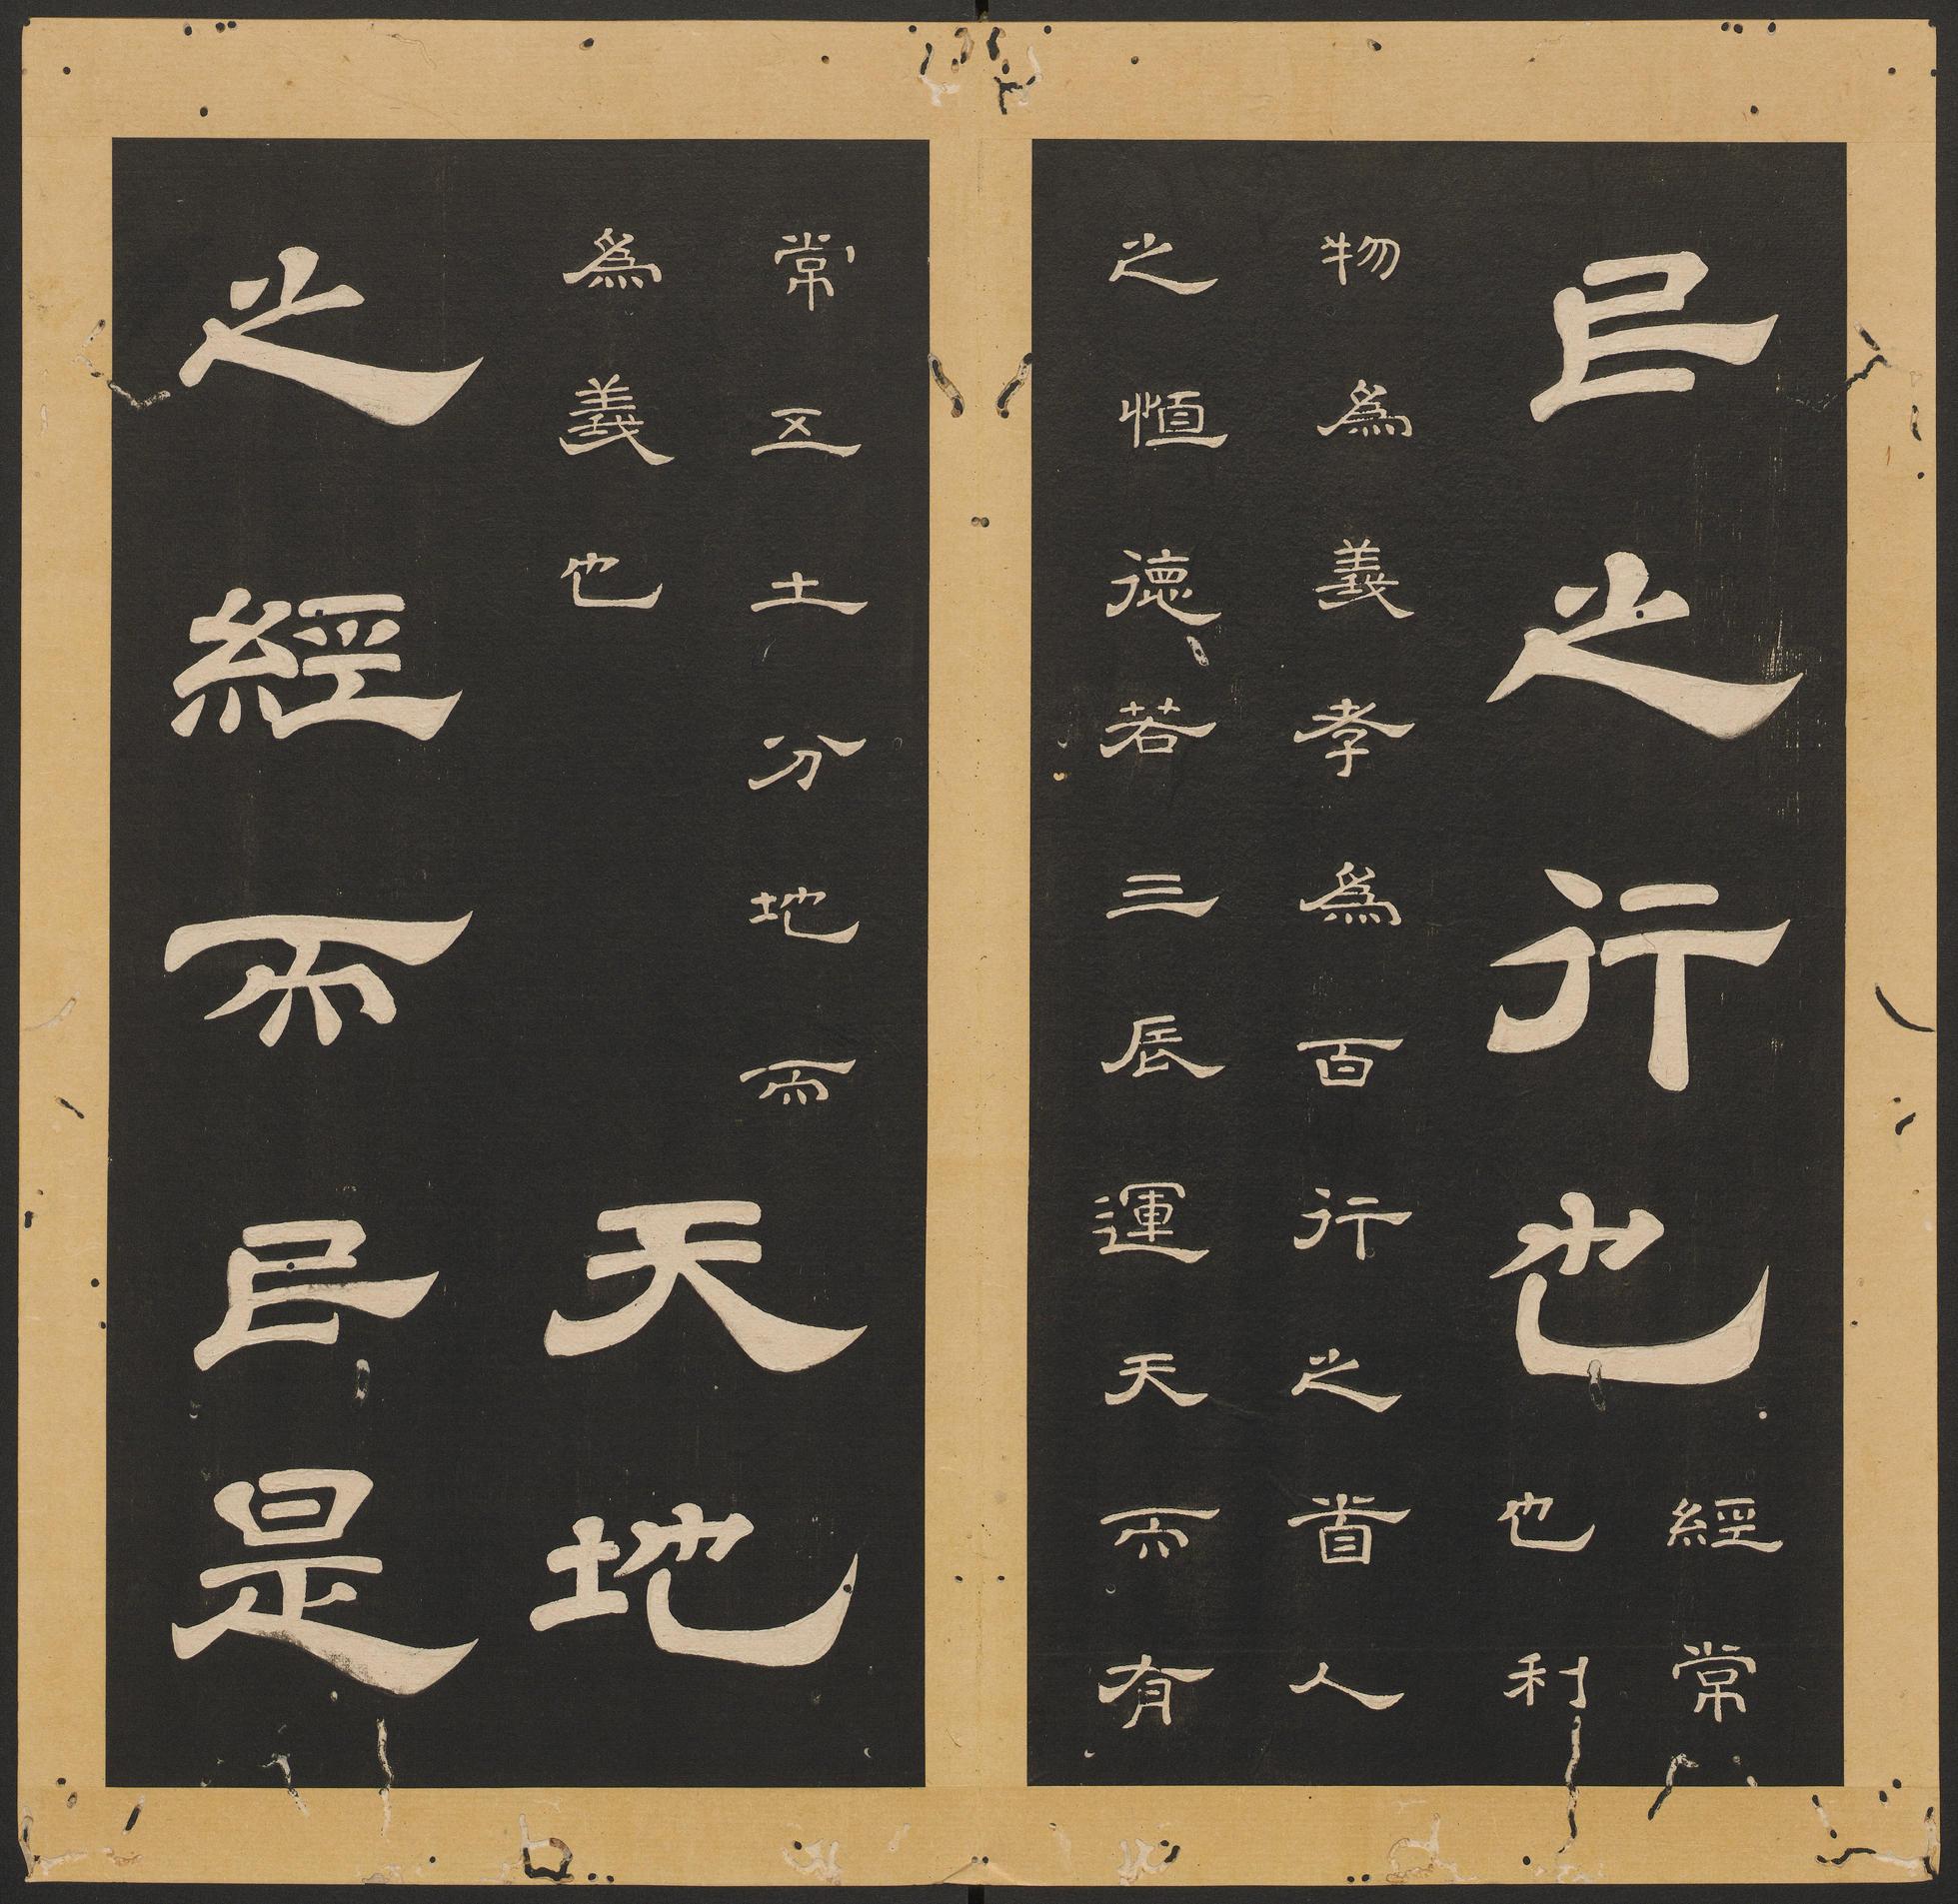 民之行也
經常
也利
物爲義孝爲百行之首人
之恒德若三辰運天而有
常五土分地而
爲義也
天地
之經而民是